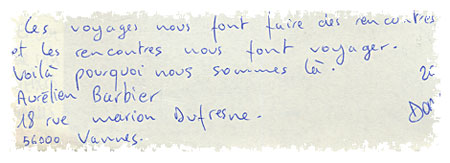 Les voyages nous font faire des rencontres
et les rencontres nous font voyager.
Voilà pourquoi nous sommes là.
Aurélien Barbier
18 rue marion Dufresne.
56000 Vannes.